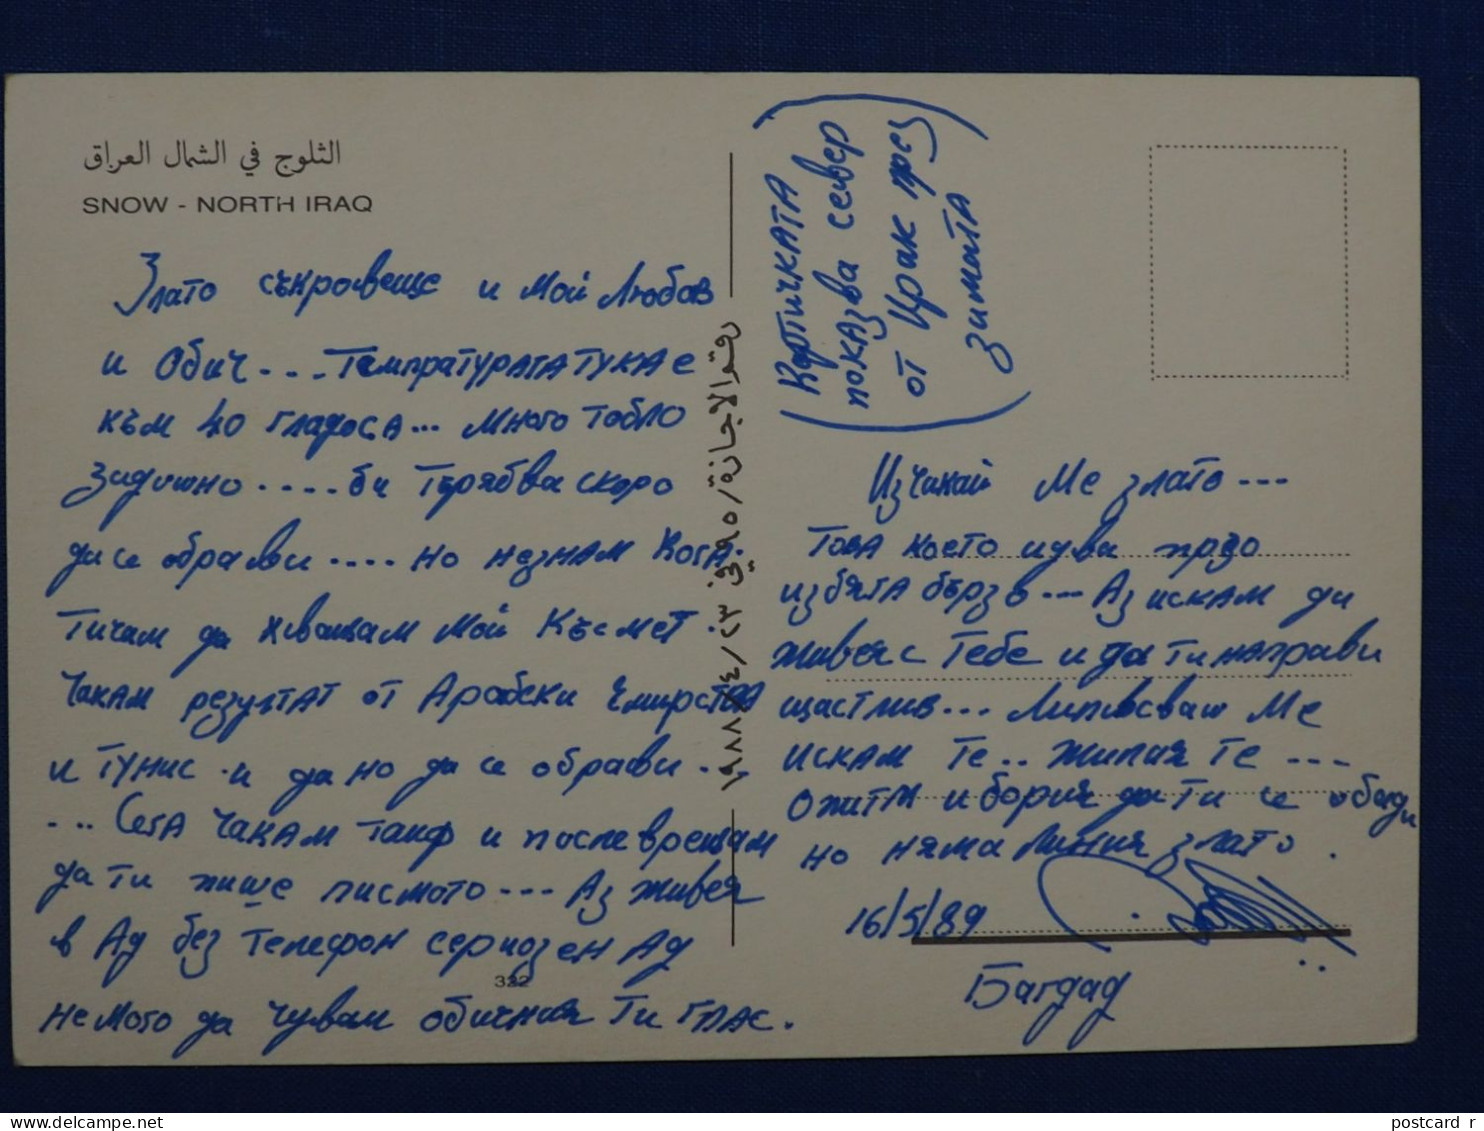 الثلوج في الشمال العراق
SNOW - NORTH IRAQ
Злато съкровеще и мой Любов
и Обич... Темпратурата тука е
към 40 гладоса... много тобло
задишно .... би Трябва скоро
да се обраави .... но незнам Кога.
Тичам да хващам мой Късмет.
Чакам резултат от Арабски Емирства
и Тунис и да но да се обраави ...
... Сега чакам таиф и после врещам
да ти пише писмото --- Аз живея
в Ад без Телефон сериозен Ад
немого да чувам обичния Ти глас.
322
(Картичката
показва север
от Ирак през
зимата)
Изчакай Ме злато ---
Това което идва прдо
избята бързв --- Аз искам да
живея с Тебе и да ти направи
щастлив --- Липвсваш Ме
искам Те .. жилая Те ---
опитм и боря да ти се обади
но няма линия злато.
16/5/89
Багдад
postcard_r